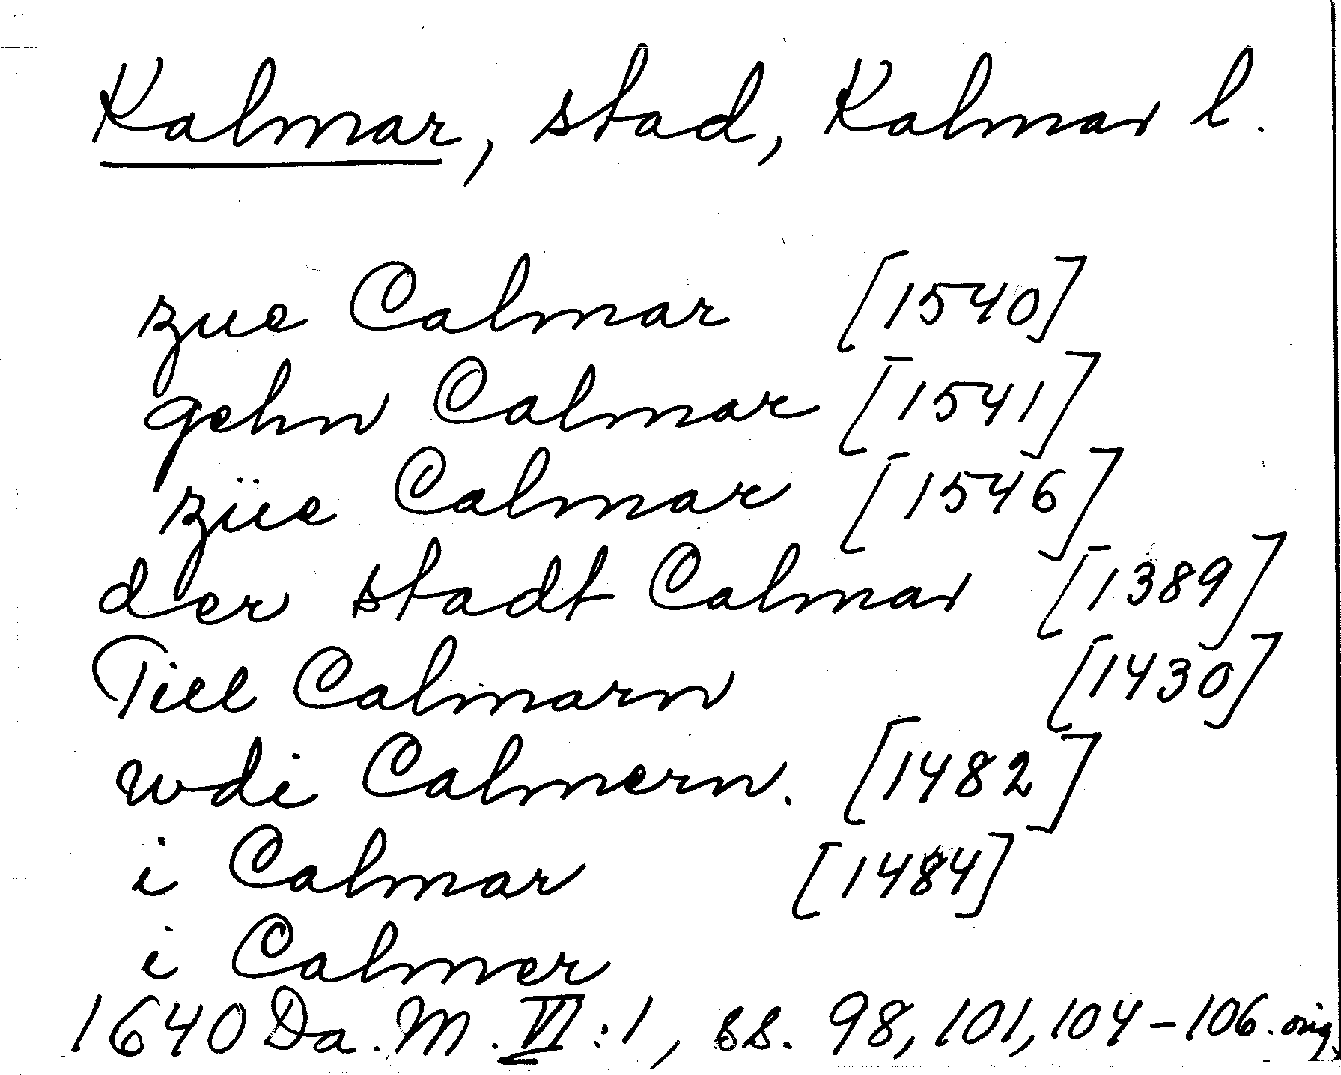 Kalmar, stad, Kalmar l.
zue Calmar [1540]
gehn Calmar [1541]
züe Calmar [1546]
der stadt Calmar [1389]
Till Calmarn [1430]
wdi Calmern. [1482]
i Calmar [1484]
i Calmer
1640 Da. M. VI:1, ss. 98, 101, 104-106. orig.